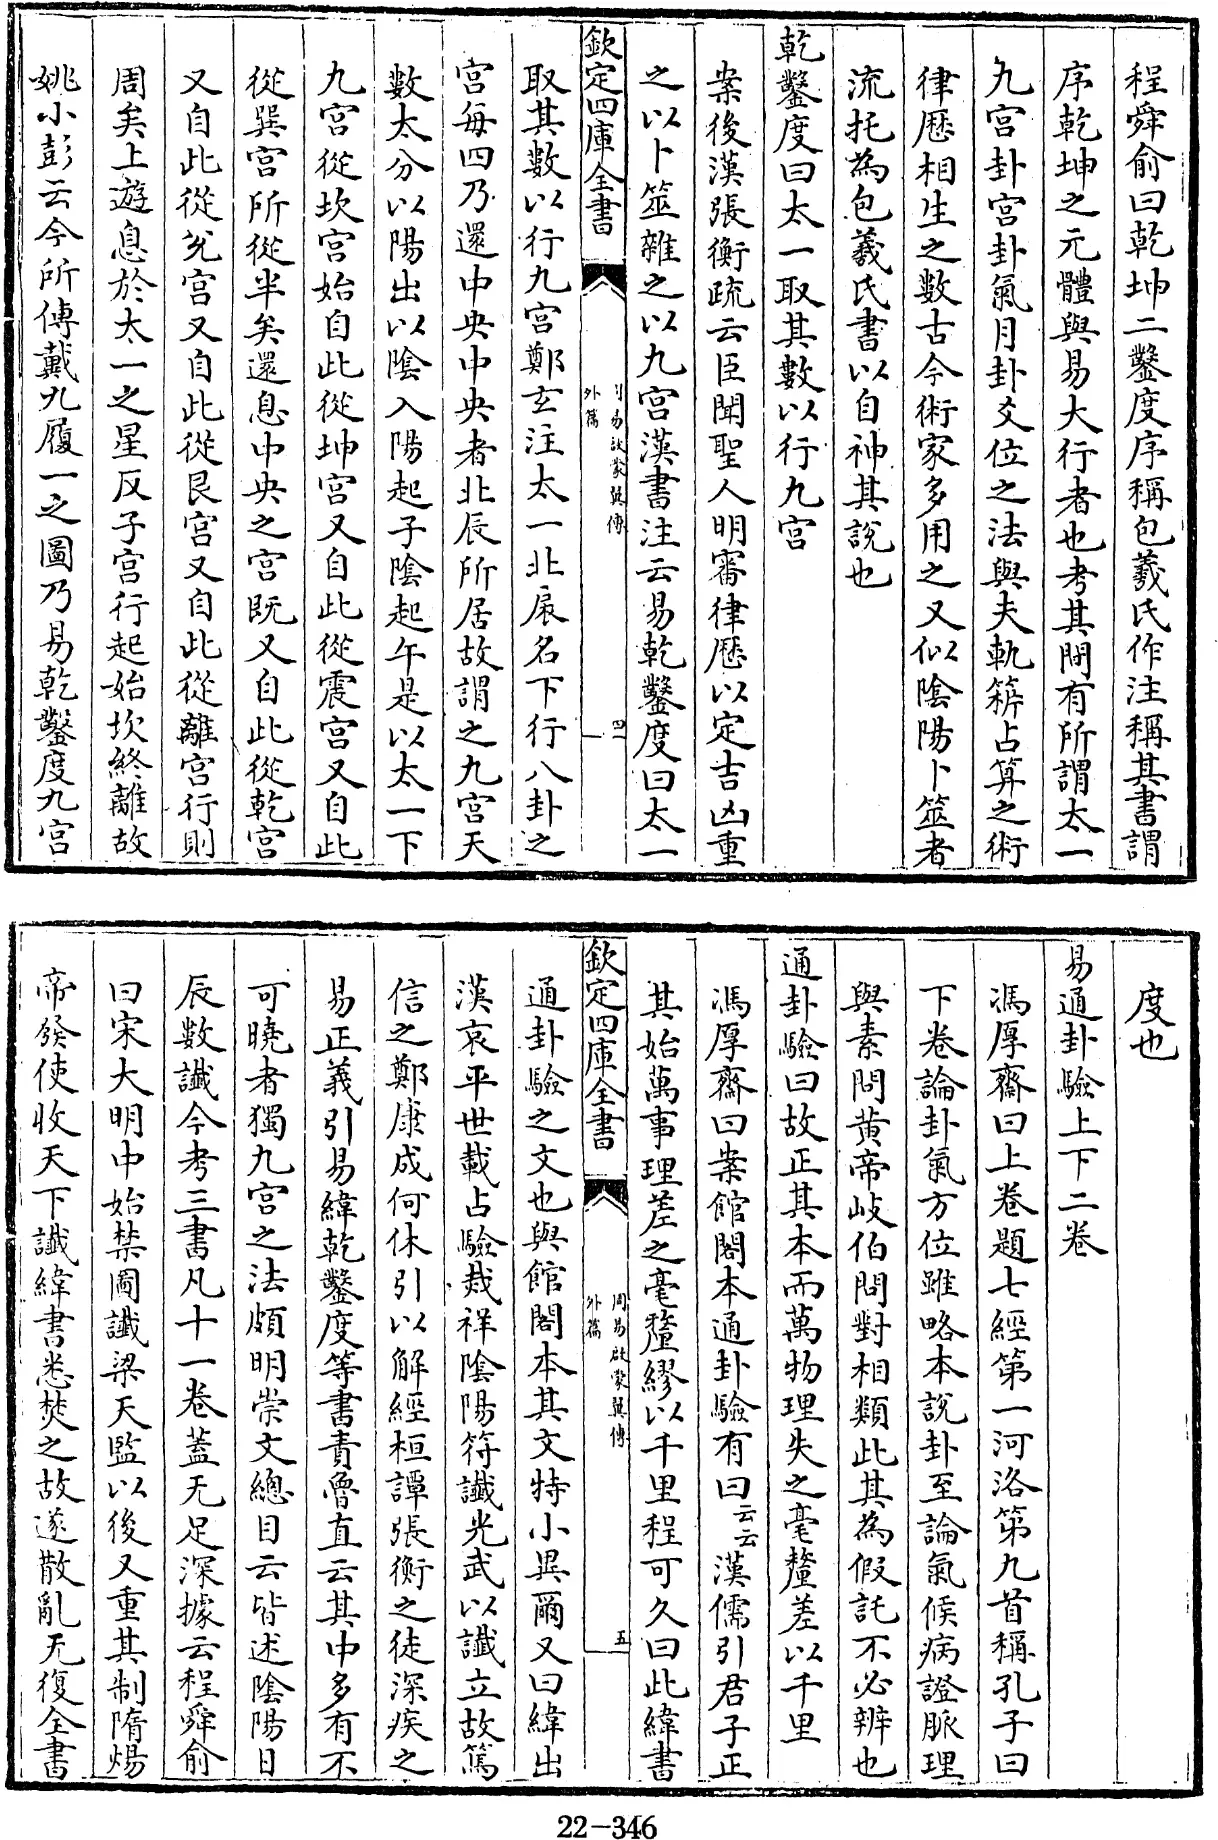 程舜俞曰乾坤二鑿度序稱包羲氏作注稱其書謂
序乾坤之元體與易大行者也考其間有所謂太一
九宮卦宮卦氣月卦爻位之法與夫軌筞占算之術
律歴相生之數古今術家多用之又似陰陽卜筮者
流托為包羲氏書以自神其說也
乾鑿度曰太一取其數以行九宮
案後漢張衡疏云臣聞聖人明審律歴以定吉凶重
之以卜筮雜之以九宮漢書注云易乾鑿度曰太一
欽定四庫全書
周易啟蒙翼傳
外篇
四
取其數以行九宮鄭玄注太一北辰名下行八卦之
宮每四乃還中央中央者北辰所居故謂之九宮天
數太分以陽出以陰入陽起子陰起午是以太一下
九宮從坎宮始自此從坤宮又自此從震宮又自此
從巽宮所從半矣還息中央之宮既又自此從乾宮
又自此從兊宮又自此從艮宮又自此從離宮行則
周矣上遊息於太一之星反子宮行起始坎終離故
姚小彭云今所傳戴九履一之圖乃易乾鑿度九宮
度也
易通卦驗上下二卷
馮厚齋曰上卷題七經第一河洛第九首稱孔子曰
下卷論卦氣方位雖略本說卦至論氣候病證脈理
與素問黄帝岐伯問對相類此其為假託不必辨也
通卦驗曰故正其本而萬物理失之毫釐差以千里
馮厚齋曰案館閣本通卦驗有曰云云漢儒引君子正
其始萬事理差之毫釐繆以千里程可久曰此緯書
欽定四庫全書
周易啟蒙翼傳
外篇
五
通卦驗之文也與館閣本其文特小異爾又曰緯出
漢哀平世載占驗烖祥陰陽符讖光武以讖立故篤
信之鄭康成何休引以解經桓譚張衡之徒深疾之
易正義引易緯乾鑿度等書責魯直云其中多有不
可曉者獨九宮之法頗明崇文總目云皆述陰陽日
辰數讖今考三書凡十一卷蓋无足深據云程舜俞
曰宋大明中始禁圖讖梁天監以後又重其制隋煬
帝發使收天下讖緯書悉焚之故遂散亂无復全書
22-346